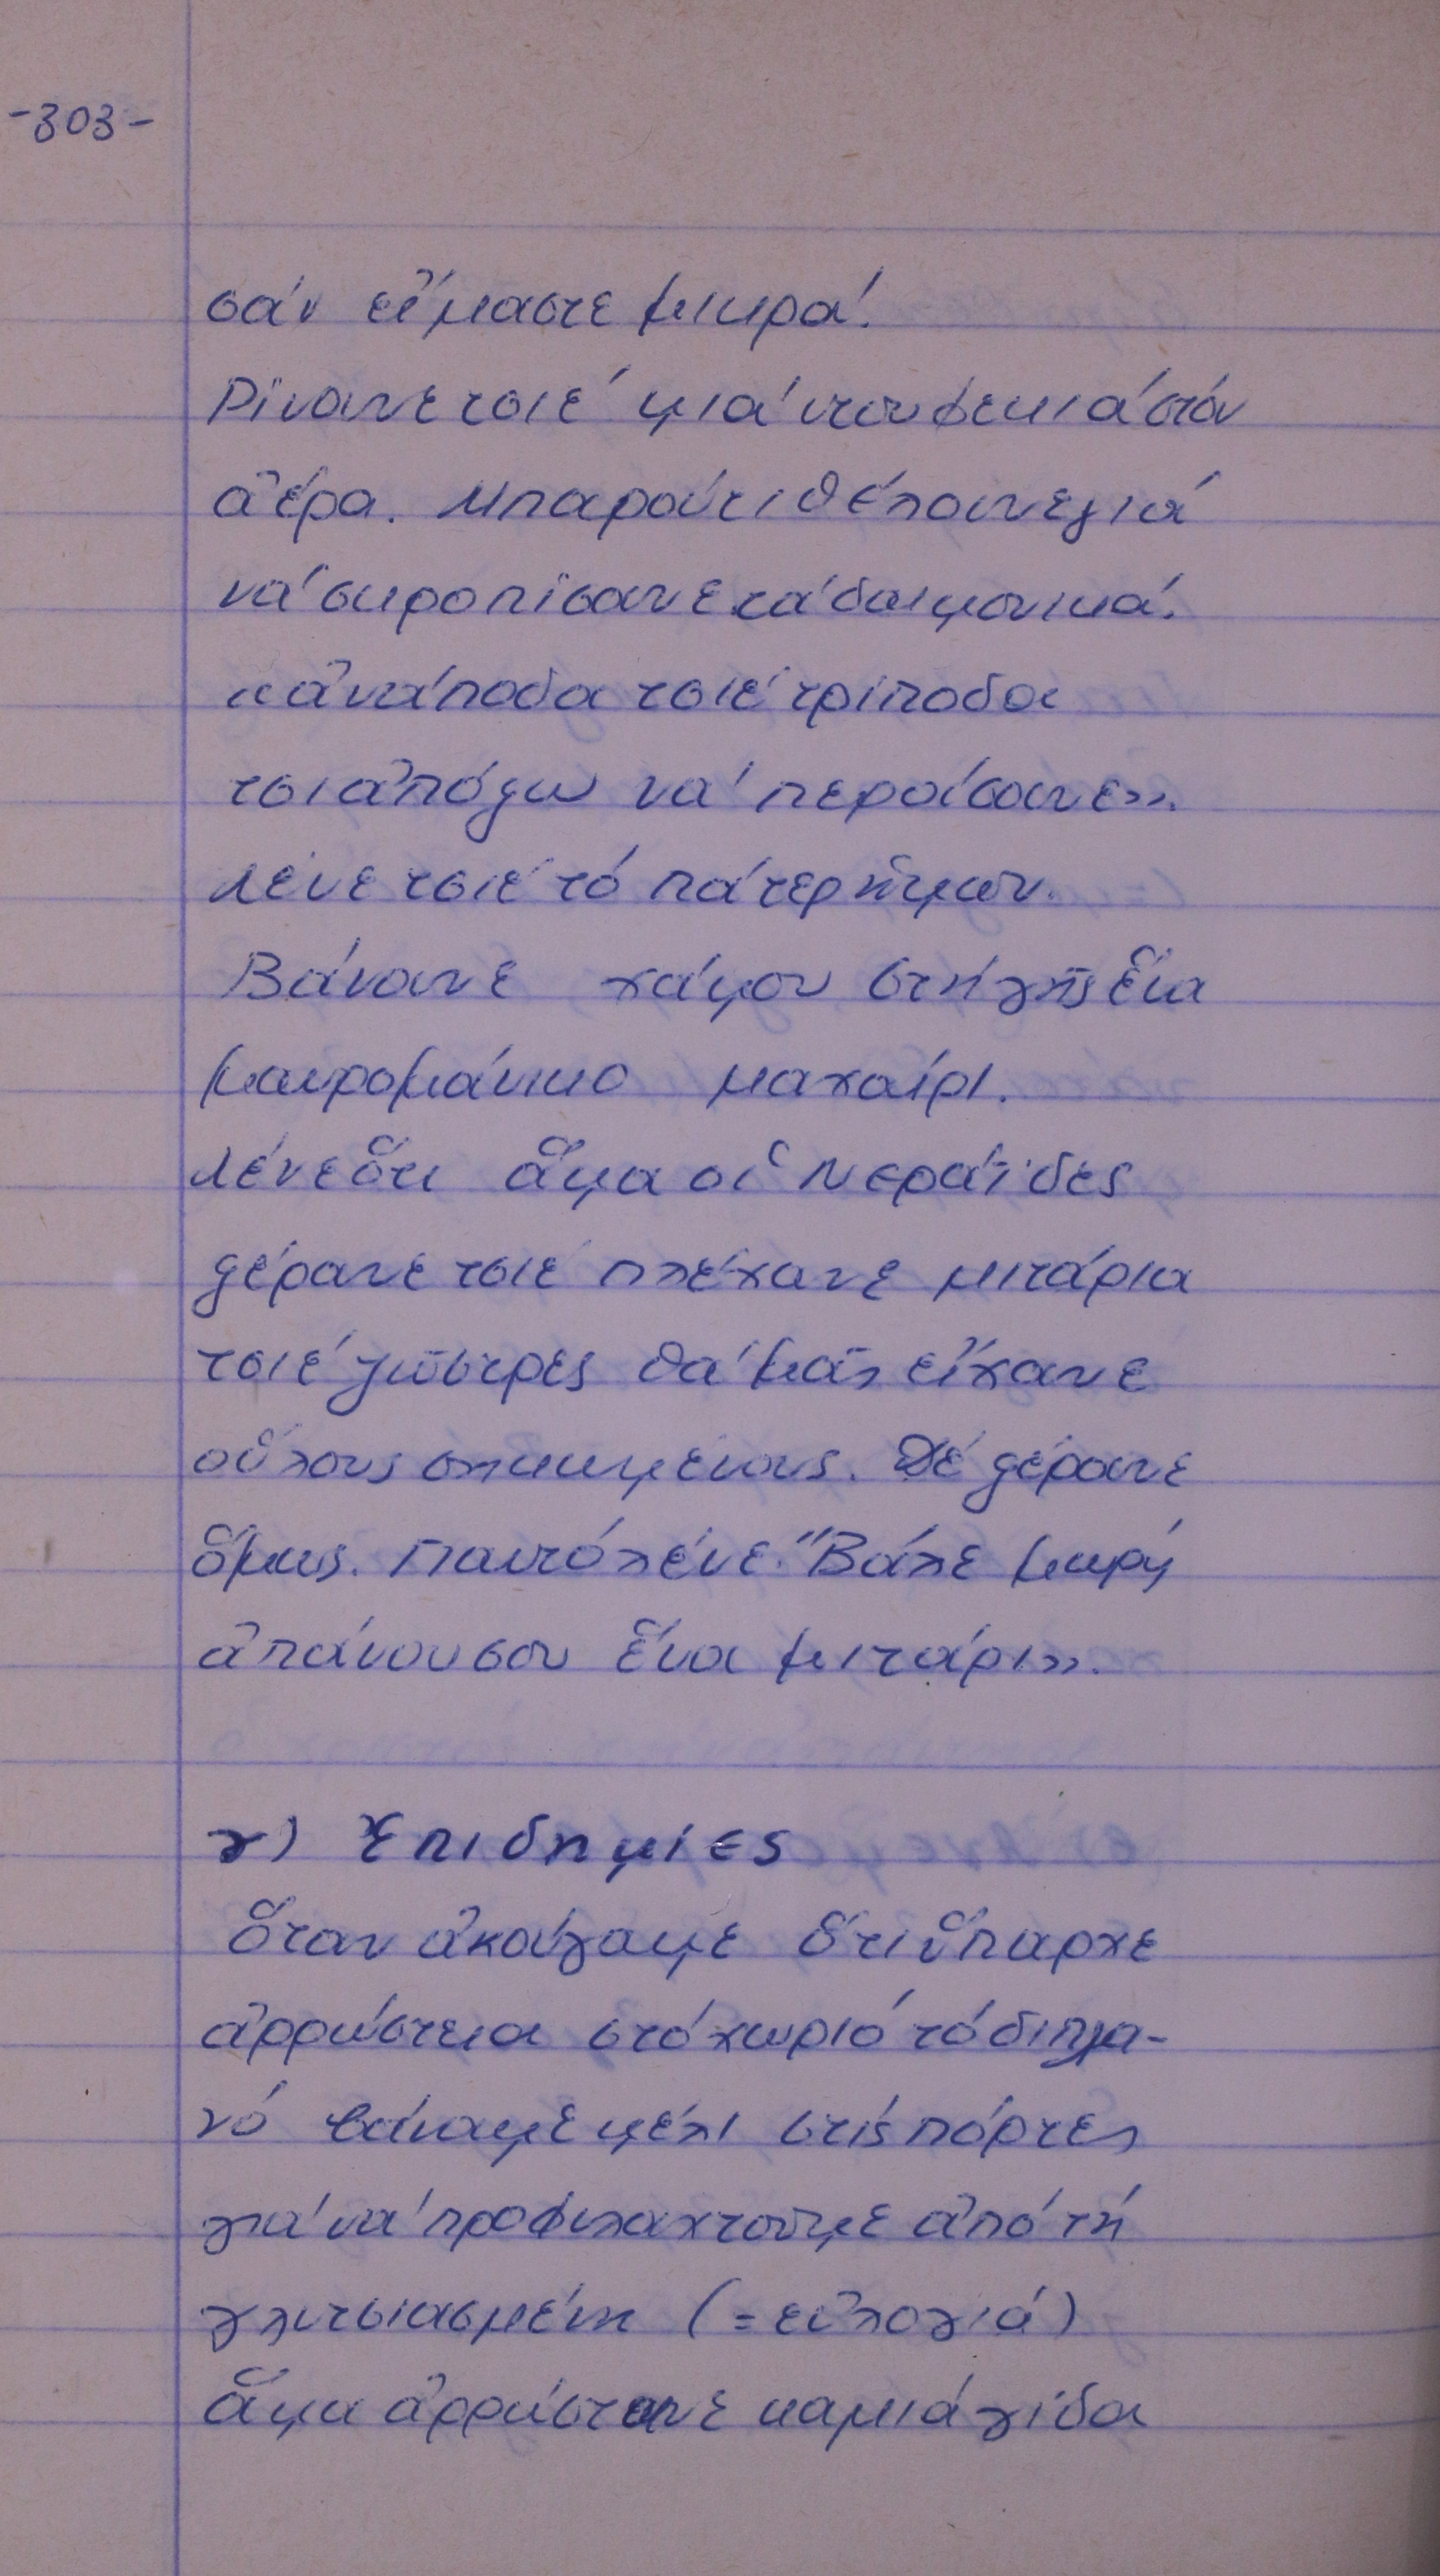 -303-
σάν εἴμαστε μικρά!
Ρίνανε τσιέ μιά ντουφεκιά στόν
ἀέρα. Μπαρούτι θέλουνε γιά
νά σκροπίσανε τά δαιμονικά.
«ἀνάποδα τσιέ τρίποδα
τσι ἀπόξω νά περάσανε».
Λένε τσιέ τό πάτερ ἡμῶν.
Βάνανε χάμου στή γῆς ἕνα
μαυρομάνικο μαχαίρι.
Λένε ὅτι ἅμα οἱ Νεράϊδες
ξέρανε τσιέ πλέχανε μιτάρια
τσιέ ζῶστρες θά μᾶς εἴχανε
οὕλους σηκωμένους. Δέ ξέρανε
ὅμως. Γιαυτό λένε. "Βάλε μωρή
ἀπάνου σου ἕνα μιτάρι».
γ) Ἐπιδημίες
Ὅταν ἀκούγαμε ὅτι ὕπαρχε
ἀρρώστεια στό χωριό τό διπλα-
νό βάναμε μέλι στίς πόρτες
γιά νά προφυλαχτοῦμε ἀπό τή
γλυτσιασμένη (=εὐλογιά)
ἅμα ἀρρώστανε καμιά γίδα